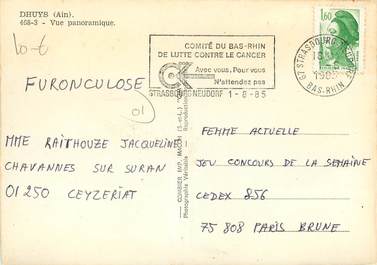 DHUYS (Ain).
468-3 - Vue panoramique.
10-6
FURONCULOSE
01
MME RAITHOUZE JACQUELINE
CHAVANNES SUR SURAN
01250 CEYZERIAT
COMITÉ DU BAS-RHIN
DE LUTTE CONTRE LE CANCER
Avec vous, Pour vous
N'attendez pas
STRASBOURG NEUDORF 1-8-85
67 STRASBOURG
1985
BAS-RHIN
1,60
COMBIER IMP. MACON (S.-et-L.)
Photographie Véritable
FEMME ACTUELLE
JEU CONCOURS DE LA SEMAINE
CEDEX 856
75 808 PARIS BRUNE